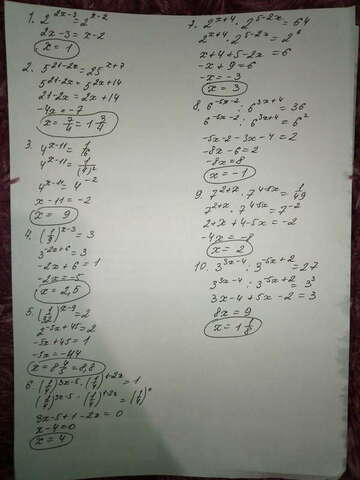 1. 2^{2x-3} = 2^{x-2}
2x-3 = x-2
x = 1
2. 5^{21-2x} = 25^{x+7}
5^{21-2x} = 5^{2x+14}
21-2x = 2x+14
-4x = -7
x = 7/4 = 1 3/4
3. 4^{x-11} = 1/16
4^{x-11} = 1/(4)^2
4^{x-11} = 4^{-2}
x-11 = -2
x = 9
4. (1/9)^{x-3} = 3
3^{-2x+6} = 3
-2x+6 = 1
-2x = -5
x = 2,5
5. (1/32)^{x-9} = 2
2^{-5x+45} = 2
-5x+45 = 1
-5x = -44
x = 8 4/5 = 8,8
6. (1/4)^{3x-5} · (1/4)^{1-2x} = 1
(1/4)^{3x-5} · (1/4)^{1-2x} = (1/4)^0
3x-5+1-2x = 0
x-4=0
x = 4
7. 2^{x+4} · 2^{5-2x} = 64
2^{x+4} · 2^{5-2x} = 2^6
x+4+5-2x = 6
-x+9 = 6
-x = -3
x = 3
8. 6^{-5x-2} : 6^{3x+4} = 36
6^{-5x-2} : 6^{3x+4} = 6^2
-5x-2-3x-4 = 2
-8x-6 = 2
-8x = 8
x = -1
9. 7^{2+x} · 7^{4-5x} = 1/49
7^{2+x} · 7^{4-5x} = 7^{-2}
2+x+4-5x = -2
-4x = -8
x = 2
10. 3^{3x-4} : 3^{-5x+2} = 27
3^{3x-4} : 3^{-5x+2} = 3^3
3x-4+5x-2 = 3
8x = 9
x = 1 1/8